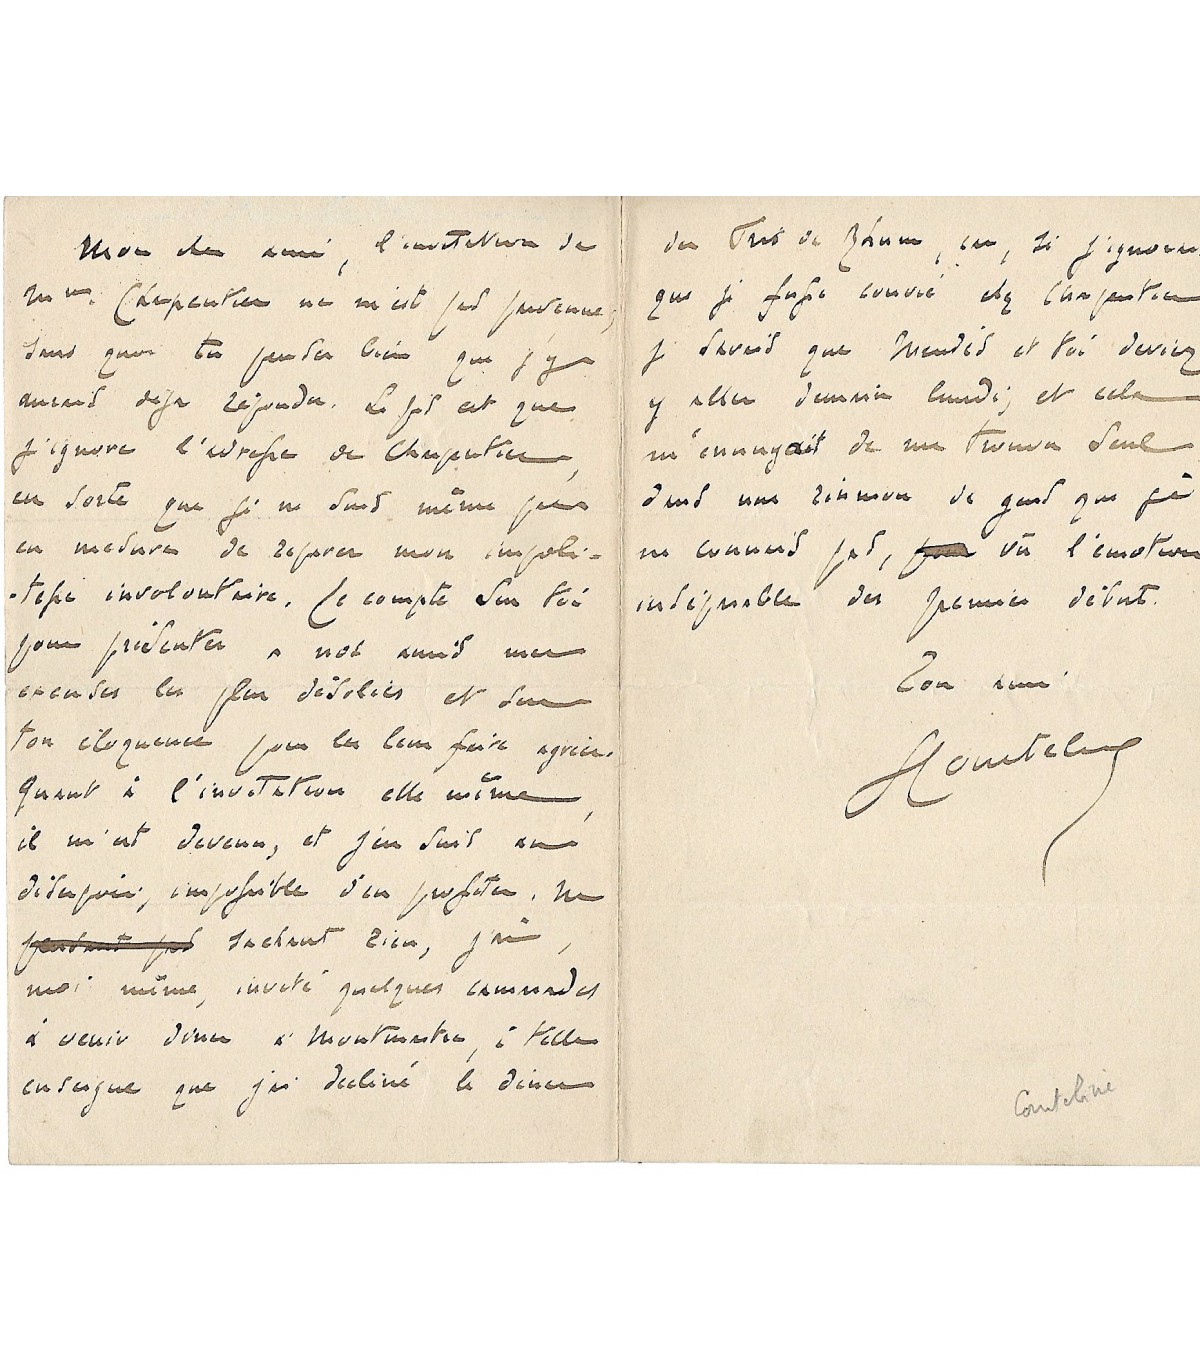 Mon cher ami, l'invitation de
Mme. Charpentier ne m'est pas parvenue,
sans quoi tu penses bien que j'y
aurais déjà répondu. Le pis est que
j'ignore l'adresse de Charpentier,
en sorte que je ne suis même pas
en mesure de réparer mon impoli-
-tesse involontaire. Je compte sur toi
pour présenter à nos amis mes
excuses les plus désolées et sur
ton éloquence pour les leur faire agréer.
Quant à l'invitation elle même,
il m'est devenu, et j'en suis au
désespoir, impossible d'en profiter. Ne
pensant pas sachant rien, j'ai,
moi même, invité quelques camarades
à venir diner à Montmartre, à telle
enseigne que j'ai decliné le diner
des Tris de
car, si j'ignorais
que je fusse convié chez Charpentier
je savais que Mendès et toi deviez
y aller demain lundi; et cela
m'ennuyait de me trouver seul
dans une réunion de gens que je
ne connais pas, pour vû l'emotion
inséparable des premiers débuts.
Ton ami
GCourteline
Courteline